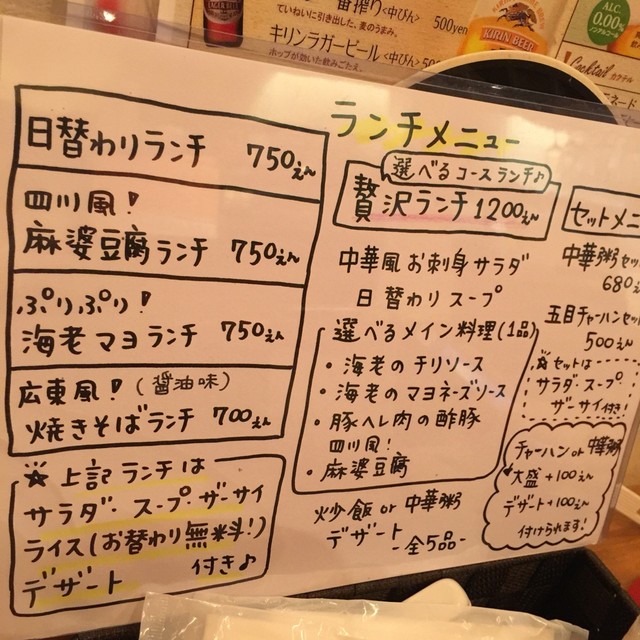 一番搾り<中びん> 500yen
ていねいに引き出した、麦のうまみ。
キリンラガービール<中びん>
ホップが効いた飲みごたえ。
KIRIN BEER
ALC.
0.00%
Cocktail カクテル
ランチメニュー
日替わりランチ 750えん
四川風!
麻婆豆腐ランチ 750えん
ぷりぷり!
海老マヨランチ 750えん
広東風!(醤油味)
焼きそばランチ 700えん
☆上記ランチは
サラダ・スープ・ザーサイ
ライス(お替わり無料!)
デザート 付き♪
選べるコースランチ♪
贅沢ランチ1200えん
中華風お刺身サラダ
日替わりスープ
選べるメイン料理(1品)
・海老のチリソース
・海老のマヨネーズソース
・豚ヘレ肉の酢豚
四川風!
・麻婆豆腐
炒飯 or 中華粥
デザート
-全5品-
セットメニ
中華粥セッ
680え
五目チャーハンセッ
500えん
☆セットは
サラダ・スープ・
ザーサイ付き!
チャーハン or 中華粥
大盛+100えん
デザート+100えん
付けられます!